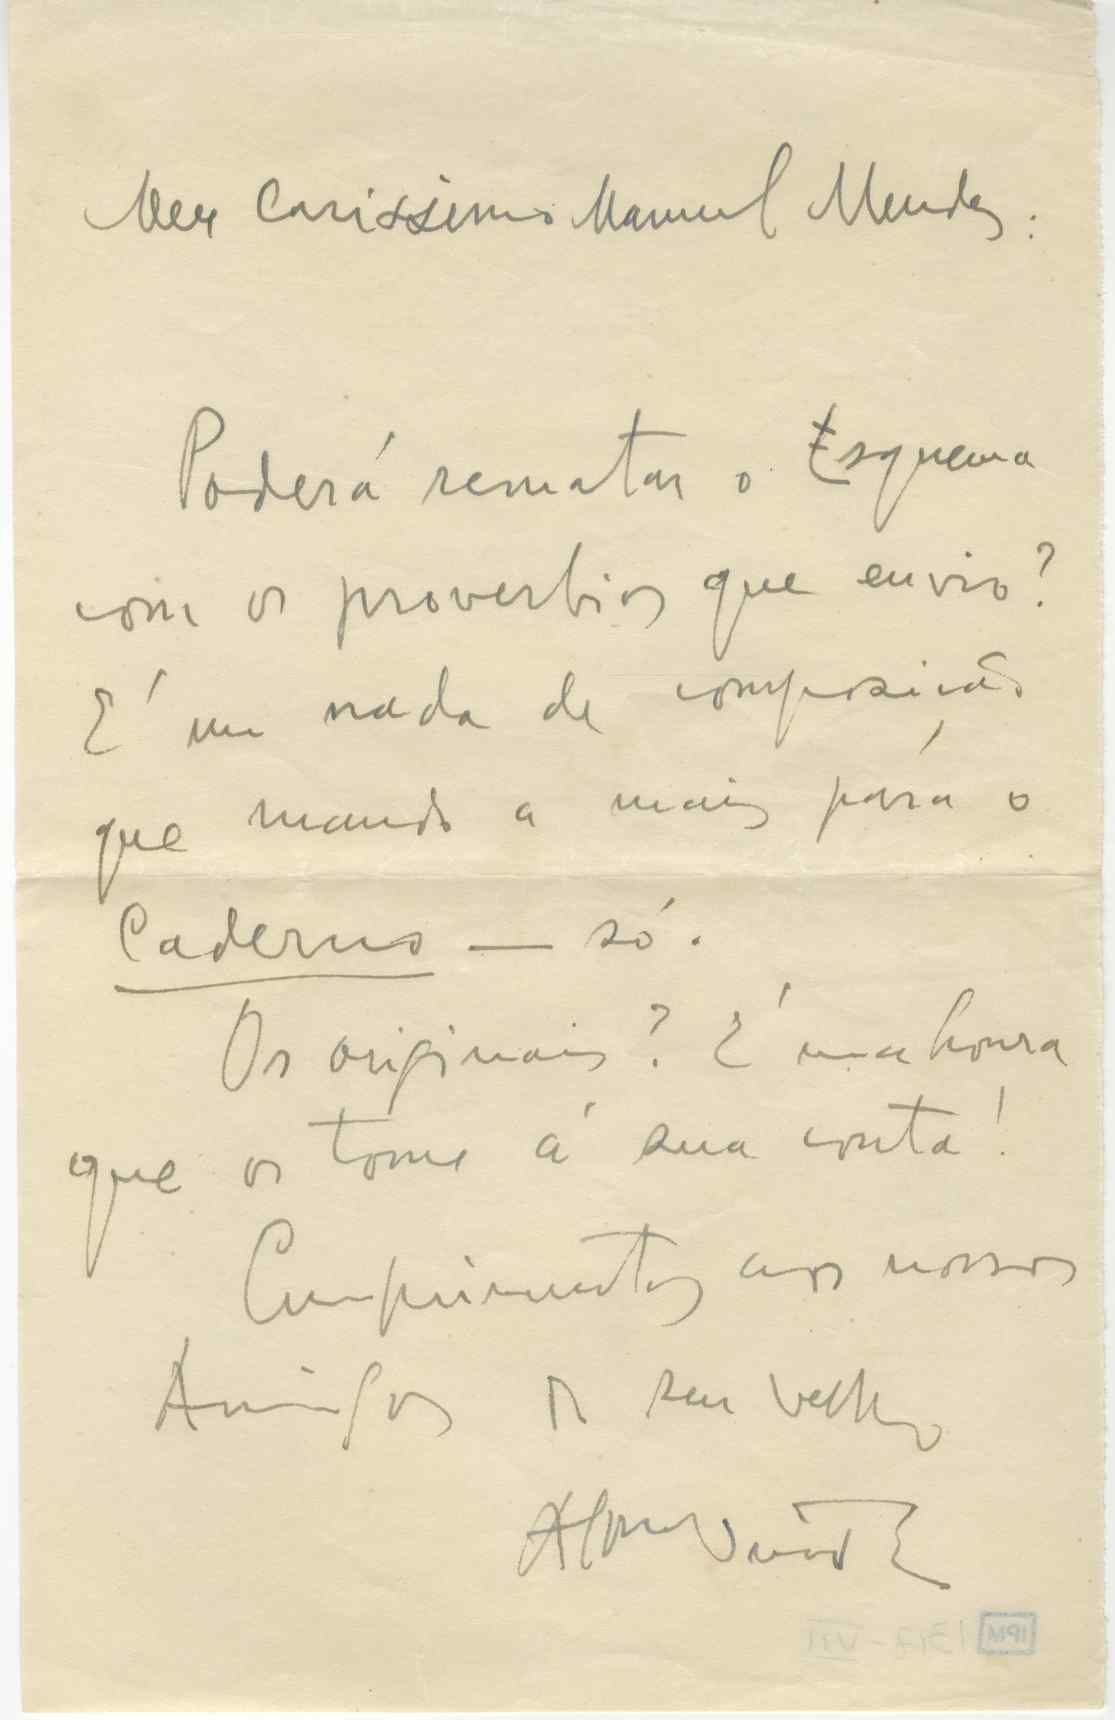 Meu Carissimo Manuel Mendes:
Poderá rematar o Esquema
com os proverbios que envio?
É um nada de composicão
que mando a mais pára o
Caderno — só.
Os originais? É uma honra
que os tome á sua conta!
Cumprimentos aos nossos
Amigos do seu velho
Afonso Duarte
IPM 1317-VII